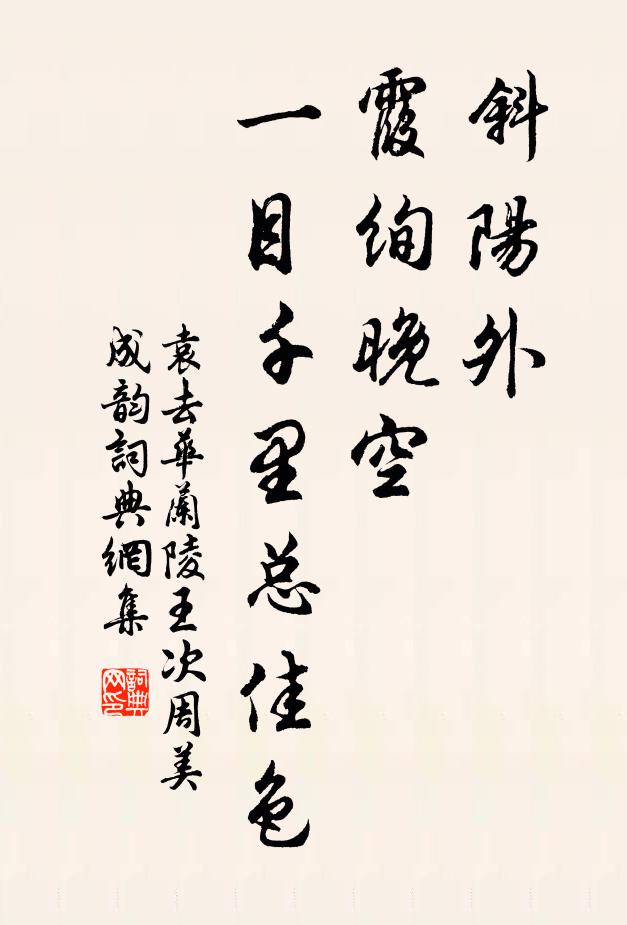 斜陽外
霞絢晚空
一目千里总佳色
袁去華蘭陵王次周美
成韵詞典網集
詞典
网印